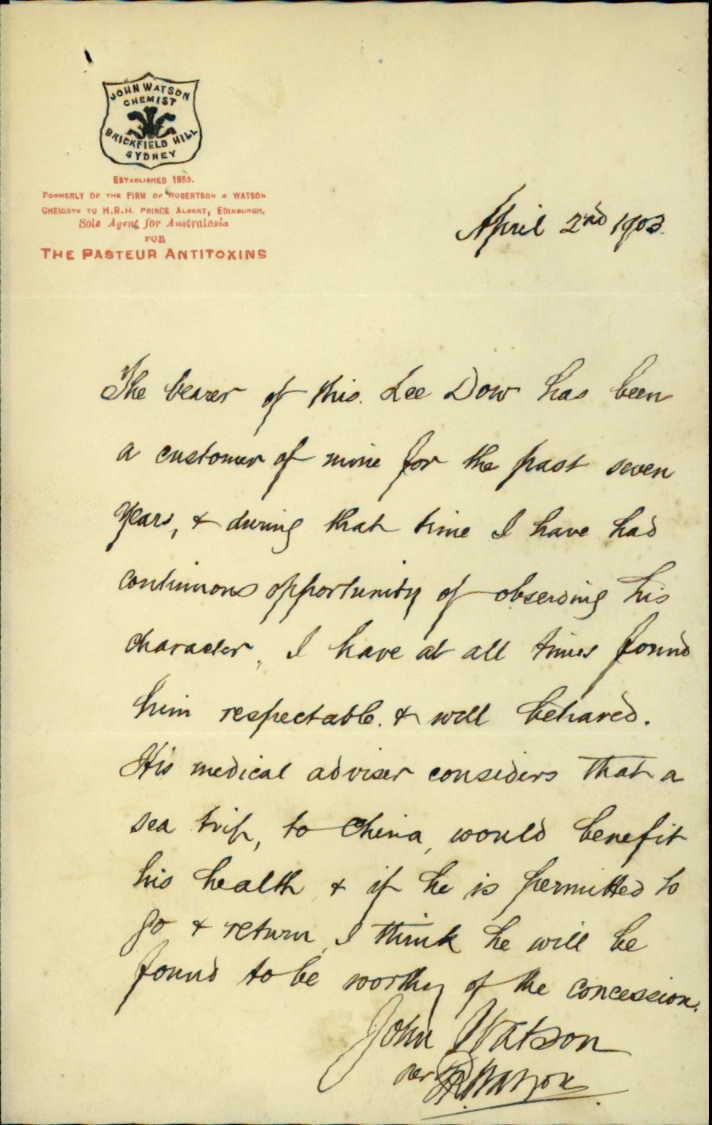 JOHN WATSON
CHEMIST
BRICKFIELD HILL
SYDNEY
ESTABLISHED
FORMERLY OF THE FIRM OF ROBERTSON & WATSON
CHEMISTS TO H.R.H. PRINCE ALBERT, EDINBURGH.
Sole Agent for Australasia
FOR
THE PASTEUR ANTITOXINS
April 2nd 1903.
The bearer of this. Lee Dow has been
a customer of mine for the past seven
years, & during that time I have had
continuous opportunity of observing his
character, I have at all times found
him respectable. & well behaved.
His medical adviser considers that a
sea trip, to China, would benefit
his health & if he is permitted to
go & return, I think he will be
found to be worthy of the concession.
John Watson
per Watson